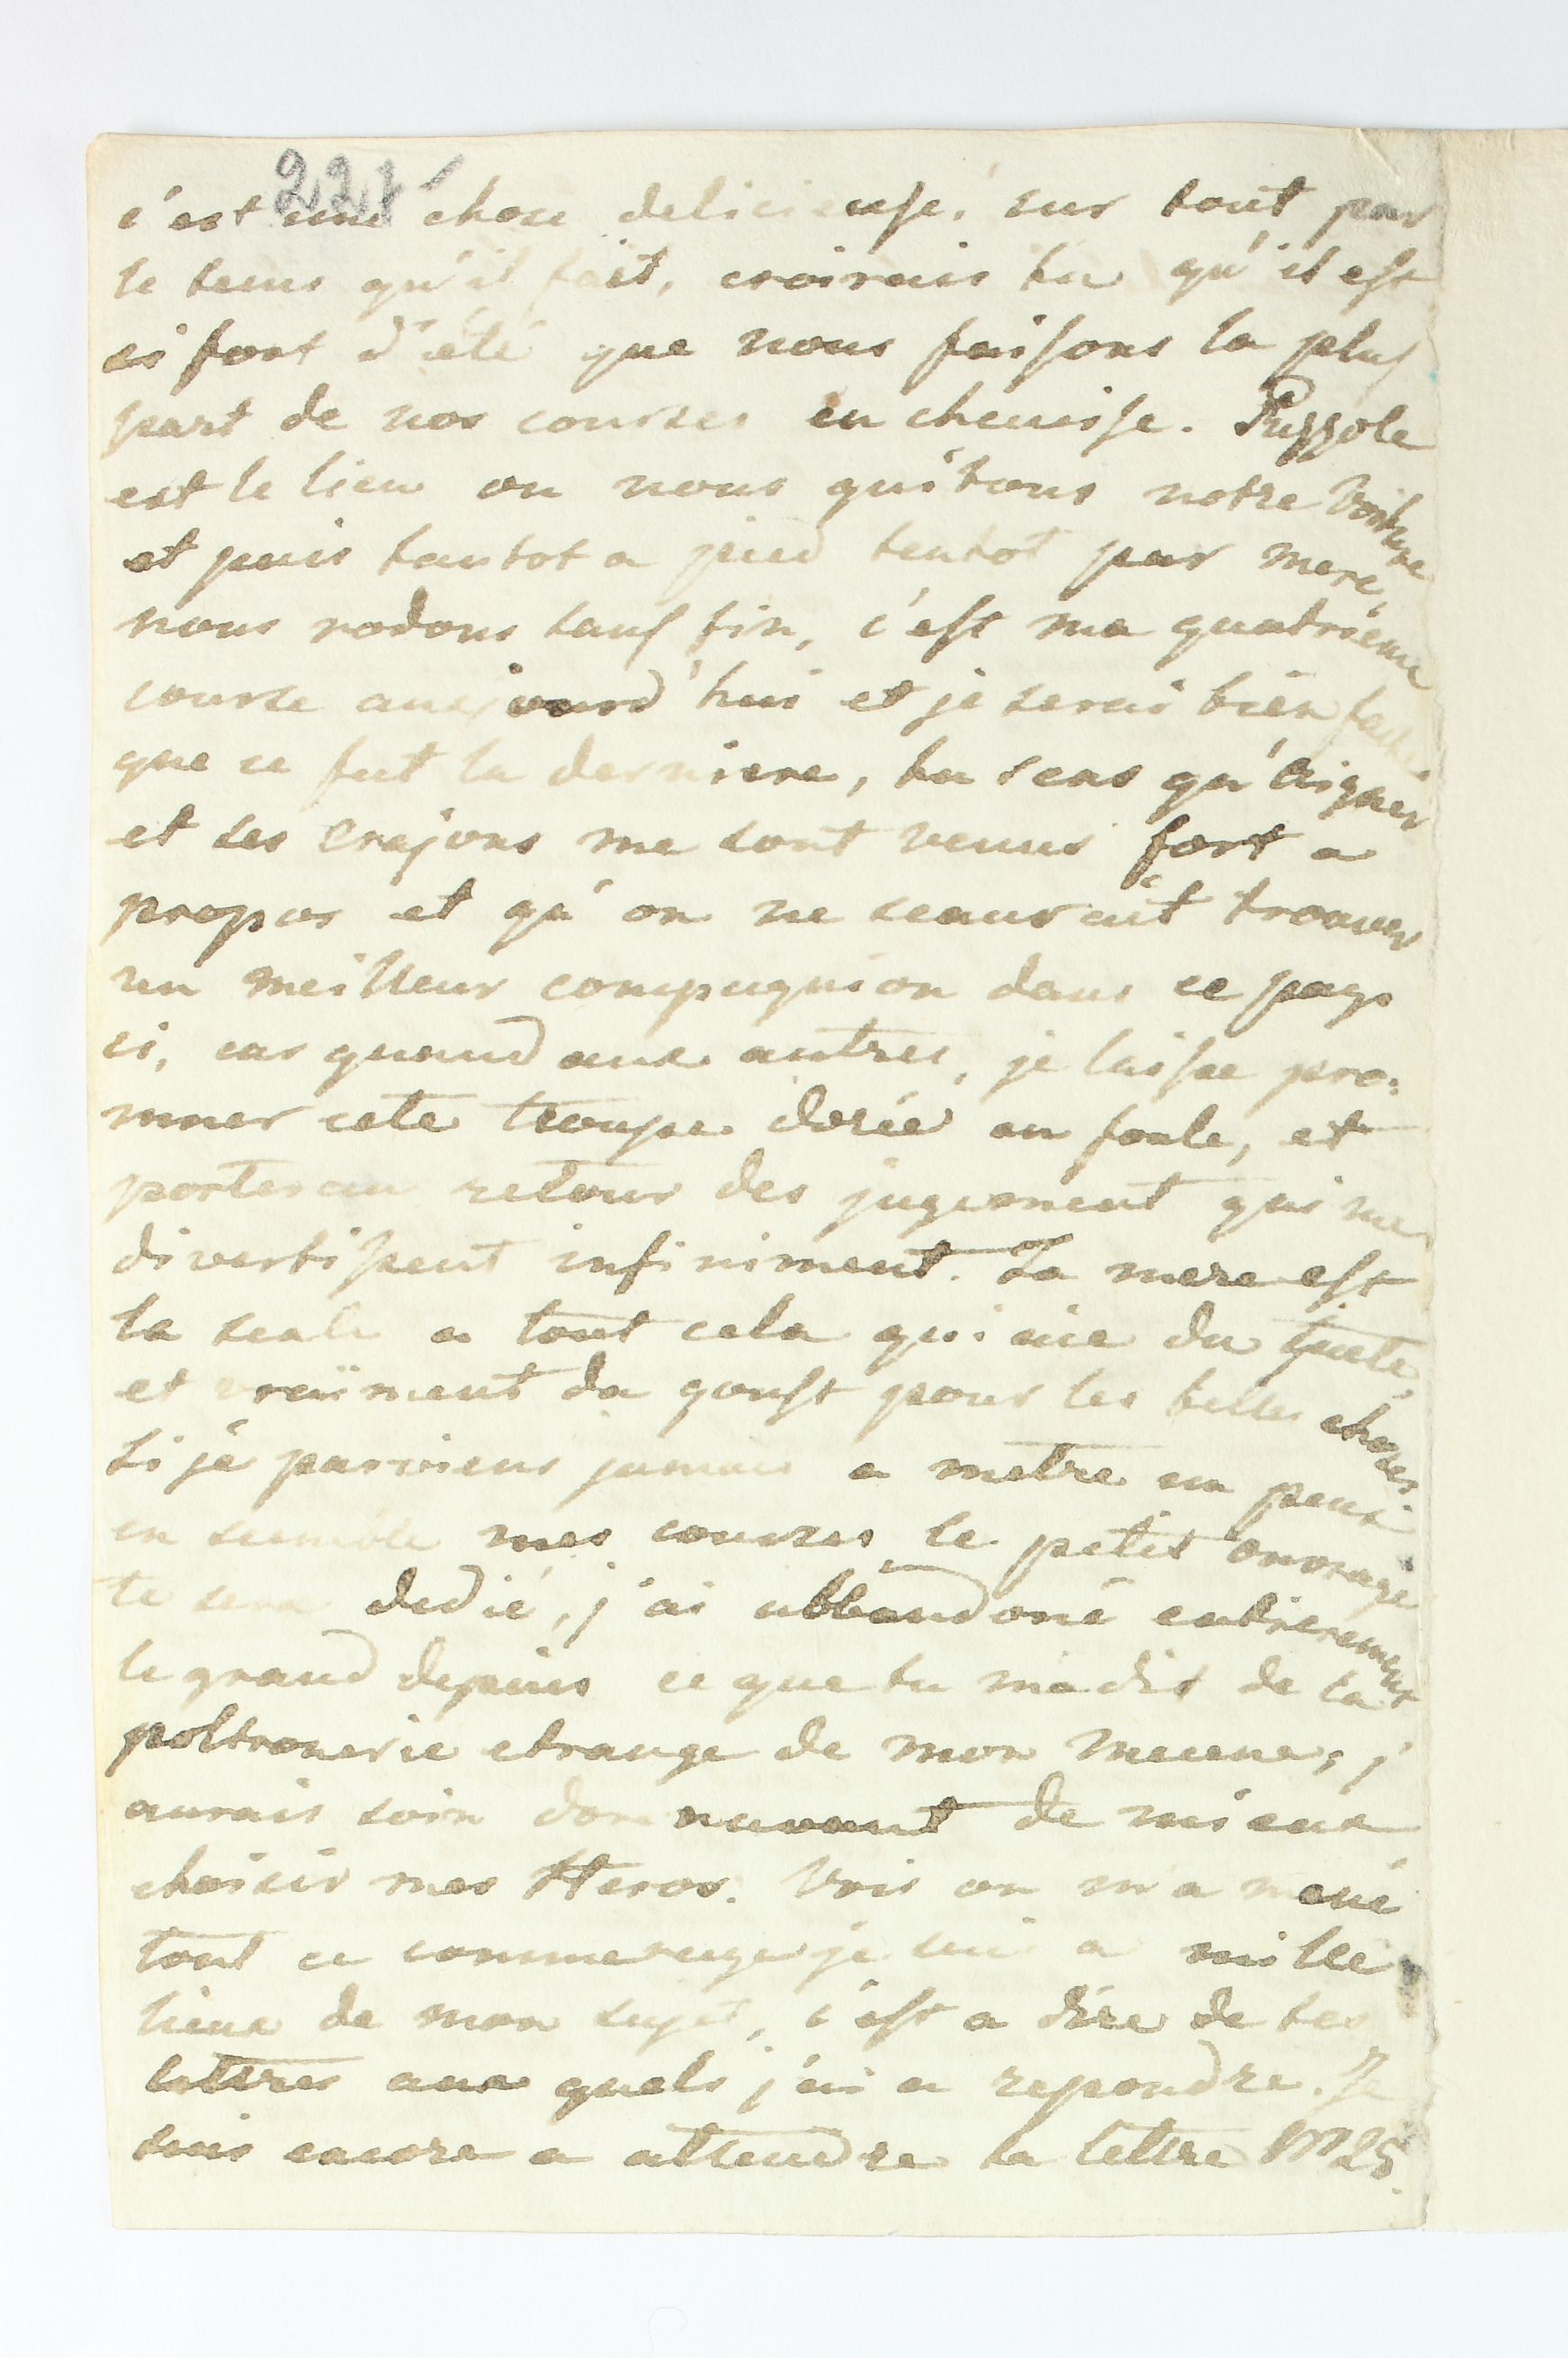 221
c'est une chose delicieuse, sur tout par
le tems qu'il fait, croirais tu qu'il est
si fort d'été que nous faisons la plus
part de nos courses en chemise. Puzzole
est le lieu ou nous quitons notre Voiture
et puis tantot a pied tentot par mere,
nous rodons sans fin, c'est ma quatrieme
course aujourd'hui et je serai bien faché
que ce fut la derniere, tu sens qu'
et ses crajons me sont venus fort a
propos et qu'on ne scauroit trouver
un meilleur compagnion dans ce pays
ci, car quand aux autres, je laisse pro:
mner cete troupe dorée en foule, et
porter au retour des jugement qui me
divertissent infiniment. La mere est
la seule a tout cela qui aie du
et vraiment du goust pour les belles choses.
Si je parviens jamais a metre un peux
en semble mes courses, le petit ouvrage
te sera dedié, j'ai abbandoné entierement
le grand depuis ce que tu m'a dis de la
poltronerie etrange de mon mecene, j
aurais soin dorenavant de mieux
choisir mes Heros. Vois on m'a mené
tout ce comerage je suis a mille
lieux de mon sujet, c'est a dire de tes
lettres aux quels j'ai a repondre. Je
suis encore a attendre ta lettre N 25.